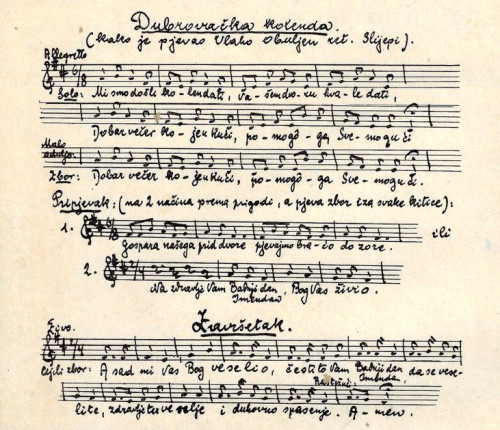 Dubrovačka kolenda.
(kako je pjevao Vlaho Obuljen ret. Slijepi).
Allegretto
Solo: Mi smo došli ko-lendati, Va-šem dvo-ru hva-le dati,
Dobar večer ko-jeu kući, po-mogô-ga Sve-mogući
Malo
Zbor: Dobar večer ko-jeu kući, po-mogô-ga Sve-mogući.
Pripjevak: (na 2 načina prema prigodi, a pjeva zbor iza svake kitice):
1. ili
Gospara našega prid dvore pjevajmo bra-ćo do zore.
2.
Na zdravlje Vam Badnji dan, Bog Vas živio.
Imendan
Završetak.
Živo.
Cijeli zbor: A sad mi Vas Bog veselio, čestito Vam Badnji dan da se vese-
Imendan,
lite, zdravlje i duhovno spasenje. A-men.